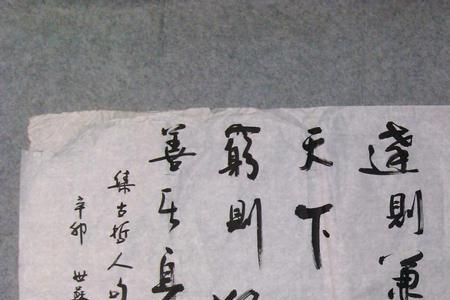 達則兼
天下
窮則
善其身
集古哲人句
辛卯 世